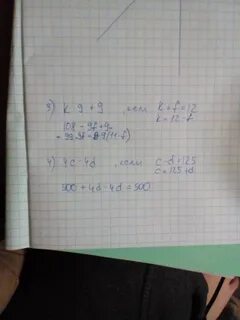 3) k 9 + 9 , если k + f = 12
k = 12 - f
108 - 9f + 9
4) 4c - 4d , если c - d = 125
c = 125 + d
500 + 4d - 4d = 500